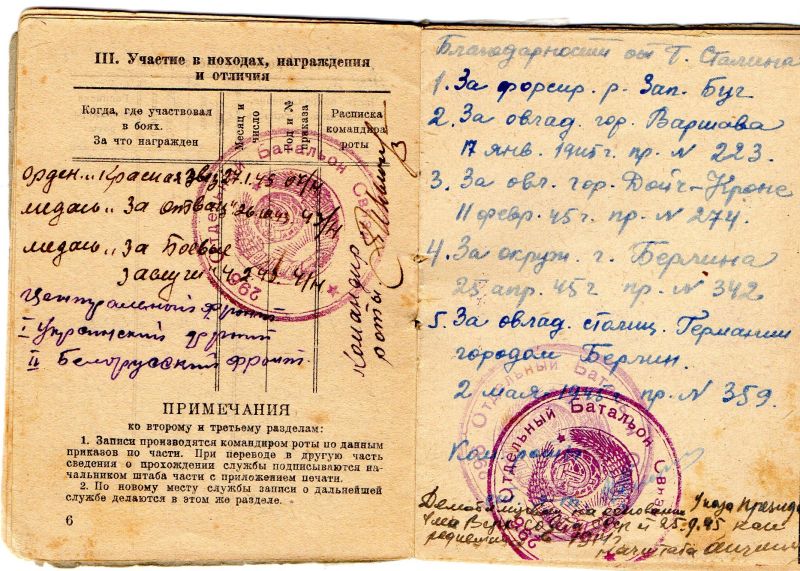 III. Участие в походах, награждения
и отличия
Когда, где участвовал
в боях.
За что награжден
Месяц и
число
Год и №
приказа
Расписка
командира
роты
орден „Красная звез 27.1.45 04/н
медаль „За отвагу" 26.10.43 43/н
медаль „За Боевые
заслуги" 4.2.43 4/н
Центральный фронт
I Украинский фронт
II Белорусский фронт
Командир
роты
296 Отдельный Батальон Связи
ПРИМЕЧАНИЯ
ко второму и третьему разделам:
1. Записи производятся командиром роты по данным
приказов по части. При переводе в другую часть
сведения о прохождении службы подписываются на-
чальником штаба части с приложением печати.
2. По новому месту службы записи о дальнейшей
службе делаются в этом же разделе.
6
Благодарности от Т. Сталина
1. За форсир. р. Зап. Буг
2. За овлад. гор. Варшава
17 янв. 1945г. пр. N 223.
3. За овл. гор. Дойч-Кроне
11 февр. 45г. пр. N 274.
4. За окруж. г. Берлина
25 апр. 45г пр. N 342
5. За овлад. столиц. Германии
городом Берлин.
2 мая 1945г. пр. N 359.
Ком. роты
296 Отдельный Батальон
296 Отдельный Батальон Связи
Демобилизован на основании Указа Президи
25.9.45